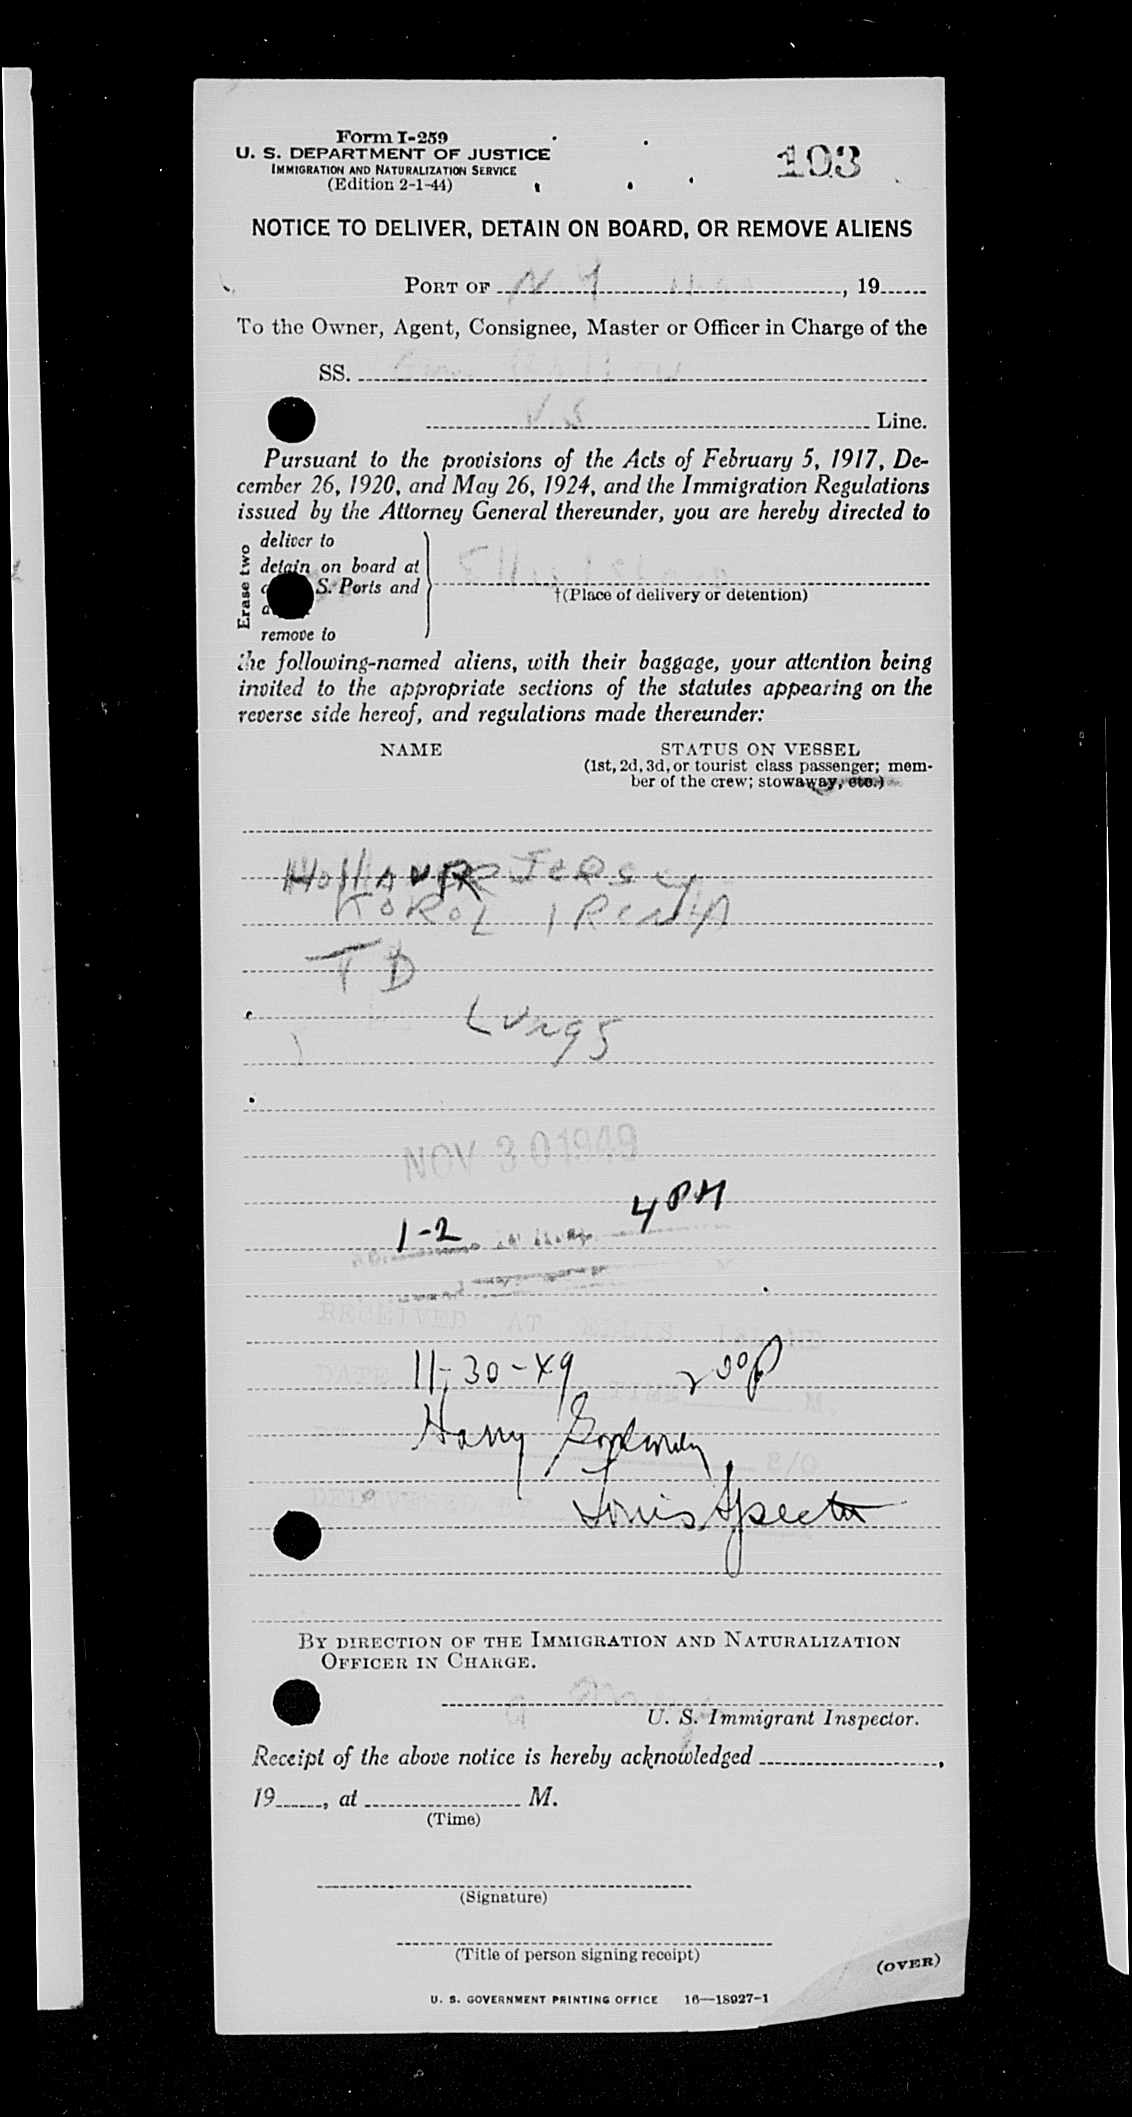 Form I-259
U. S. DEPARTMENT OF JUSTICE
IMMIGRATION AND NATURALIZATION SERVICE
(Edition 2-1-44)
103
NOTICE TO DELIVER, DETAIN ON BOARD, OR REMOVE ALIENS
PORT OF N Y , 19
To the Owner, Agent, Consignee, Master or Officer in Charge of the
SS.
U.S Line.
Pursuant to the provisions of the Acts of February 5, 1917, De-
cember 26, 1920, and May 26, 1924, and the Immigration Regulations
issued by the Attorney General thereunder, you are hereby directed to
Erase two
deliver to
detain on board at
S. Ports and
remove to
Ellis Island
†(Place of delivery or detention)
the following-named aliens, with their baggage, your attention being
invited to the appropriate sections of the statutes appearing on the
reverse side hereof, and regulations made thereunder:
NAME
STATUS ON VESSEL
(1st, 2d, 3d, or tourist class passenger; mem-
ber of the crew; stowaway, etc.)
KOROL IRENA
Lungs
NOV 30 1949
1-2 4 PM
RECEIVED AT ELLIS ISLAND
DATE TIME M.
11-30-49 2 00 P
Harry
S/O
DELIVERED
Louis Specter
BY DIRECTION OF THE IMMIGRATION AND NATURALIZATION
OFFICER IN CHARGE.
U. S. Immigrant Inspector.
Receipt of the above notice is hereby acknowledged ,
19 , at M.
(Time)
(Signature)
(Title of person signing receipt)
(OVER)
U. S. GOVERNMENT PRINTING OFFICE 16—18927-1